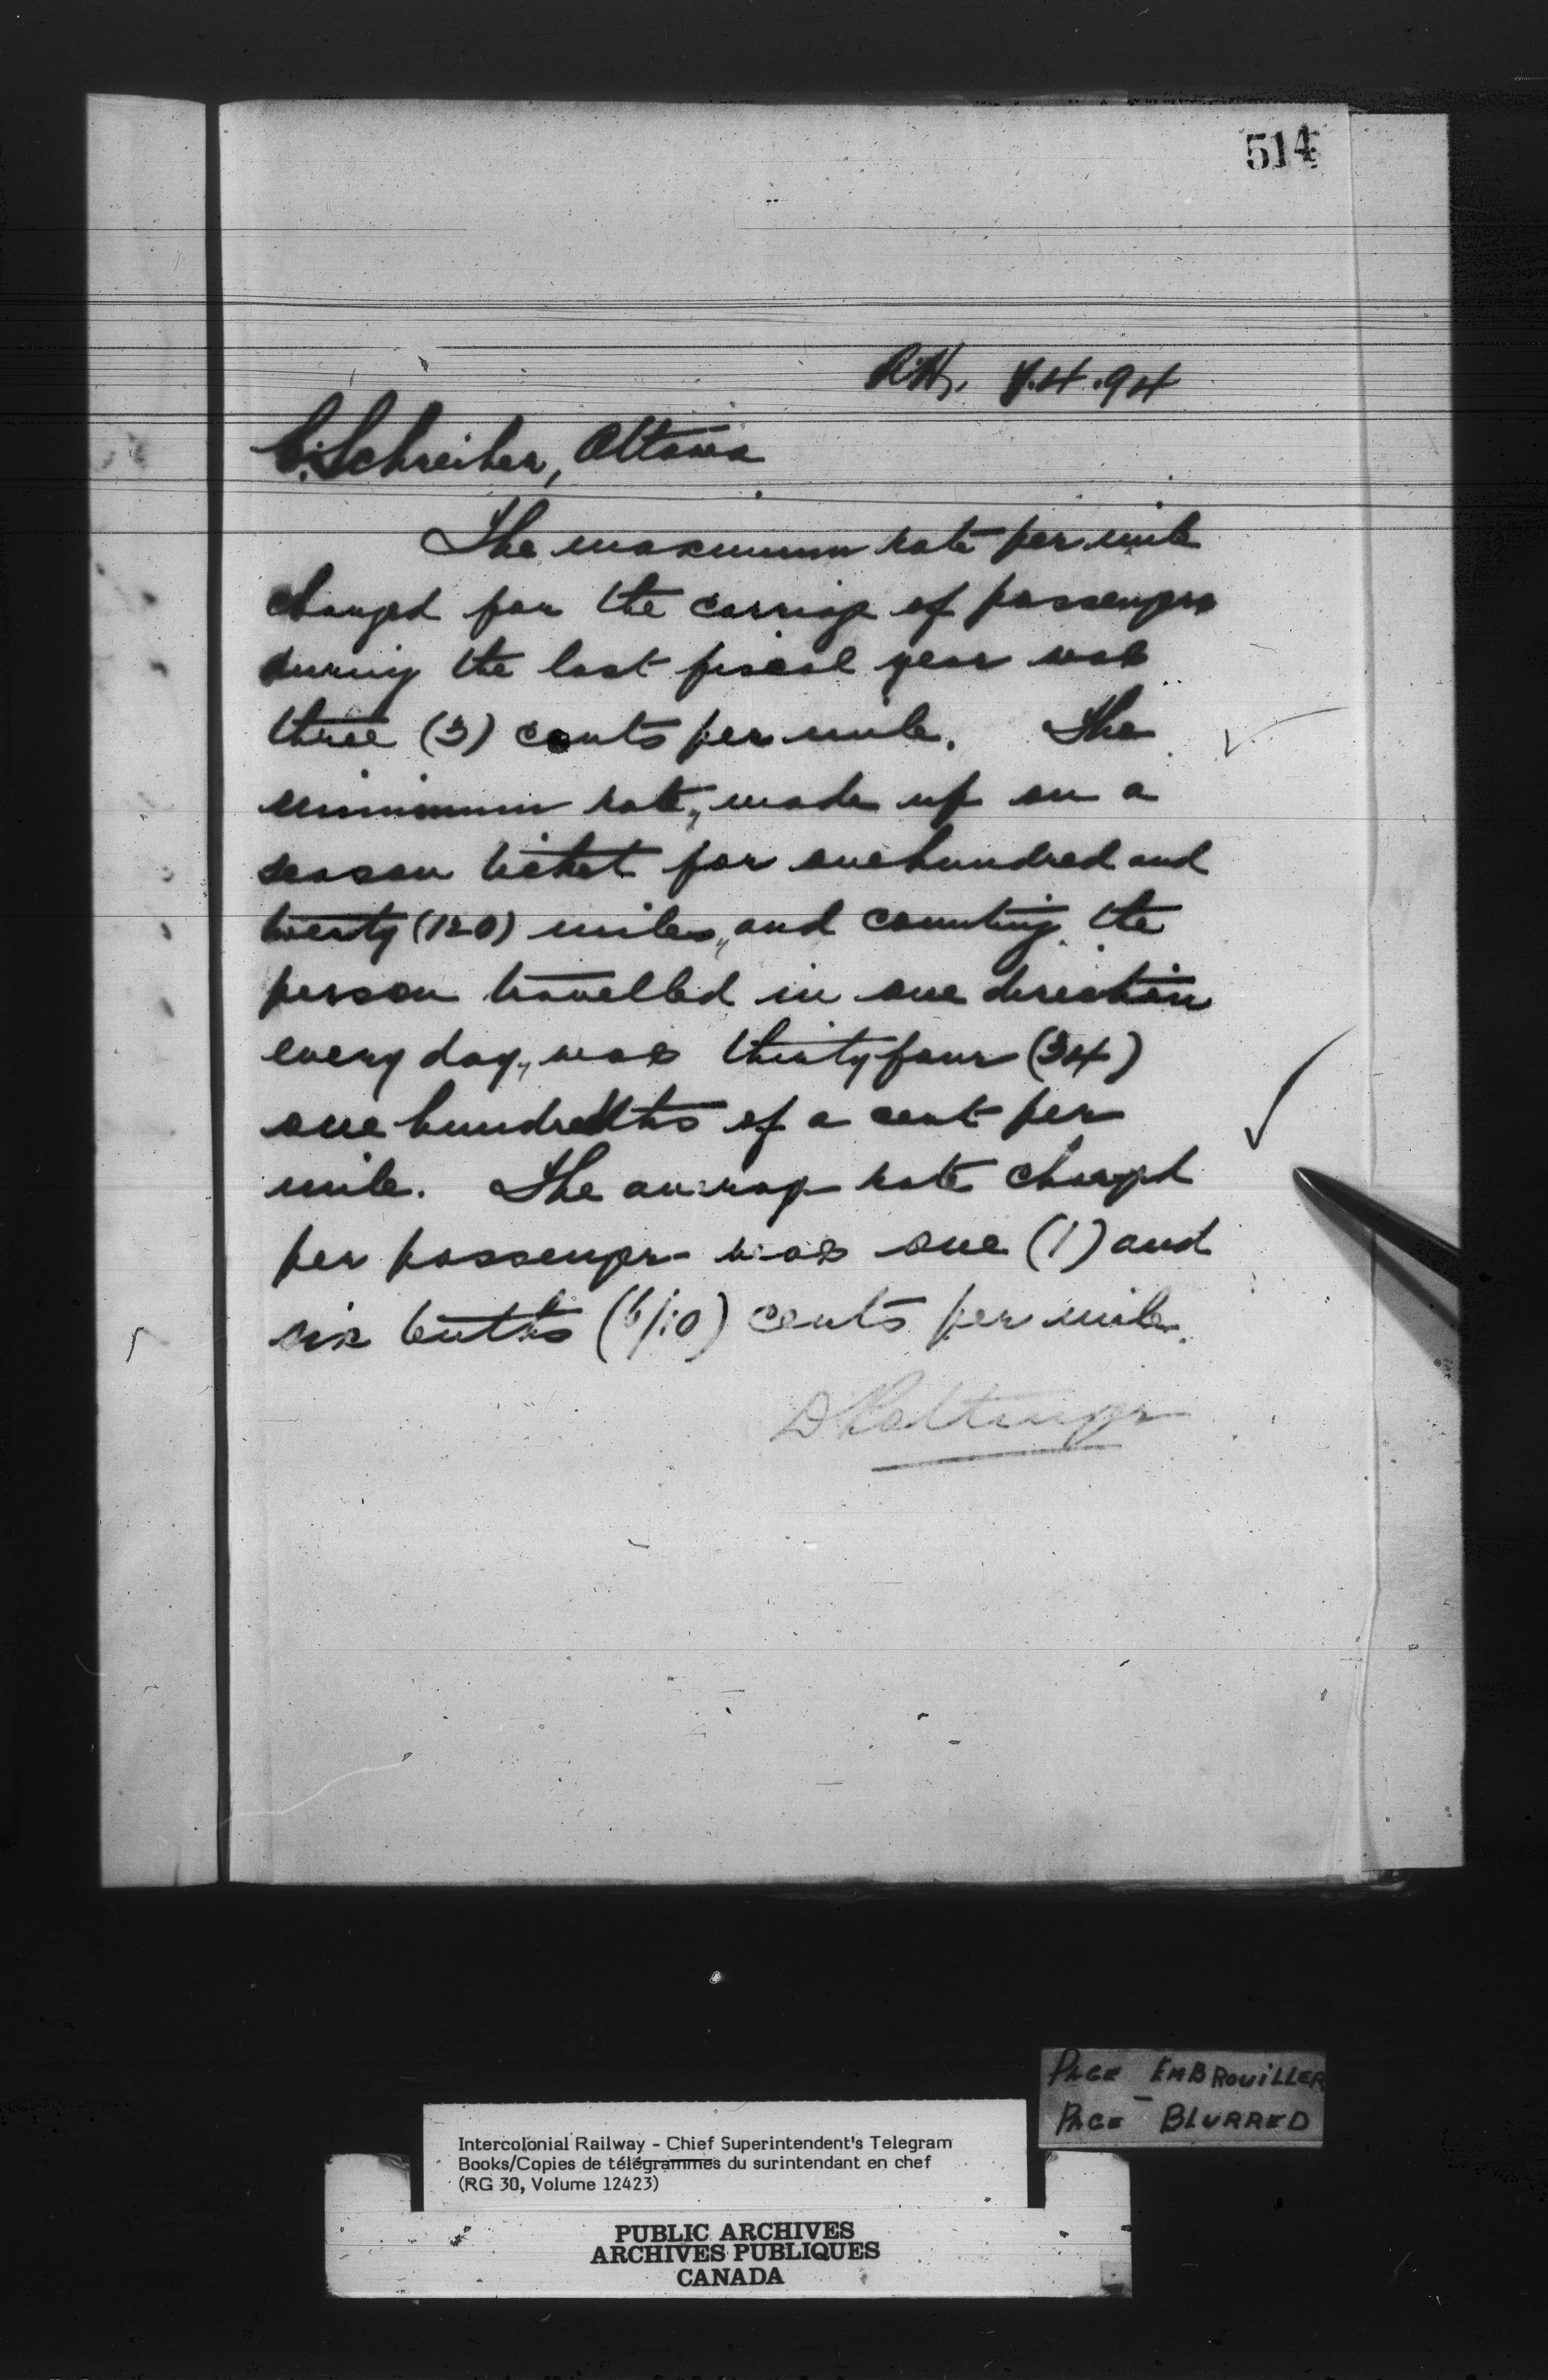 514
8.4.94
C. Schreiber, Ottawa
The maximum rate per mile
charged for the carriage of passengers
during the last fiscal year was
three (3) cents per mile. The
minimum rate, made up on a
season ticket for one hundred and
twenty (120) miles, and counting the
person travelled in one direction
every day, was thirty four (34)
one hundredths of a cent per
mile. The average rate charged
per passenger was one (1) and
six tenths (6/10) cents per mile.
D Pottinger
PAGE EMBROUILLER
PAGE BLURRED
Intercolonial Railway - Chief Superintendent's Telegram
Books/Copies de télégrammes du surintendant en chef
(RG 30, Volume 12423)
PUBLIC ARCHIVES
ARCHIVES PUBLIQUES
CANADA